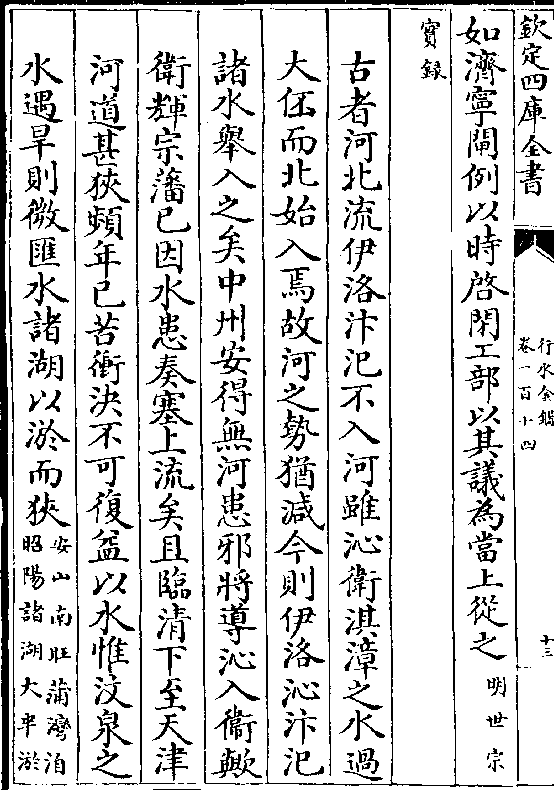 欽定四庫全書
行水金鑑
卷一百十四
十三
如濟寧閘例以時啓閉工部以其議為當上從之明世宗
實録
古者河北流伊洛汴汜不入河雖沁衛淇漳之水過
大伾而北始入焉故河之勢猶減今則伊洛沁汴汜
諸水舉入之矣中州安得無河患邪將導沁入衞歟
衛輝宗藩已因水患奏塞上流矣且臨清下至天津
河道甚狹頻年已苦衝決不可復益以水惟汶泉之
水遇旱則微匯水諸湖以淤而狹安山南旺蒲灣泊
昭陽諸湖大半淤